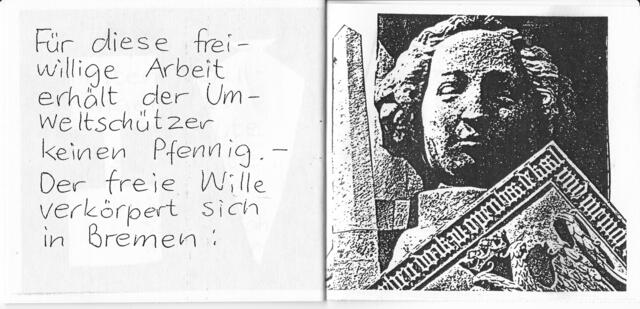 Für diese frei-
willige Arbeit
erhält der Um-
weltschützer
keinen Pfennig. –
Der freie Wille
verkörpert sich
in Bremen :